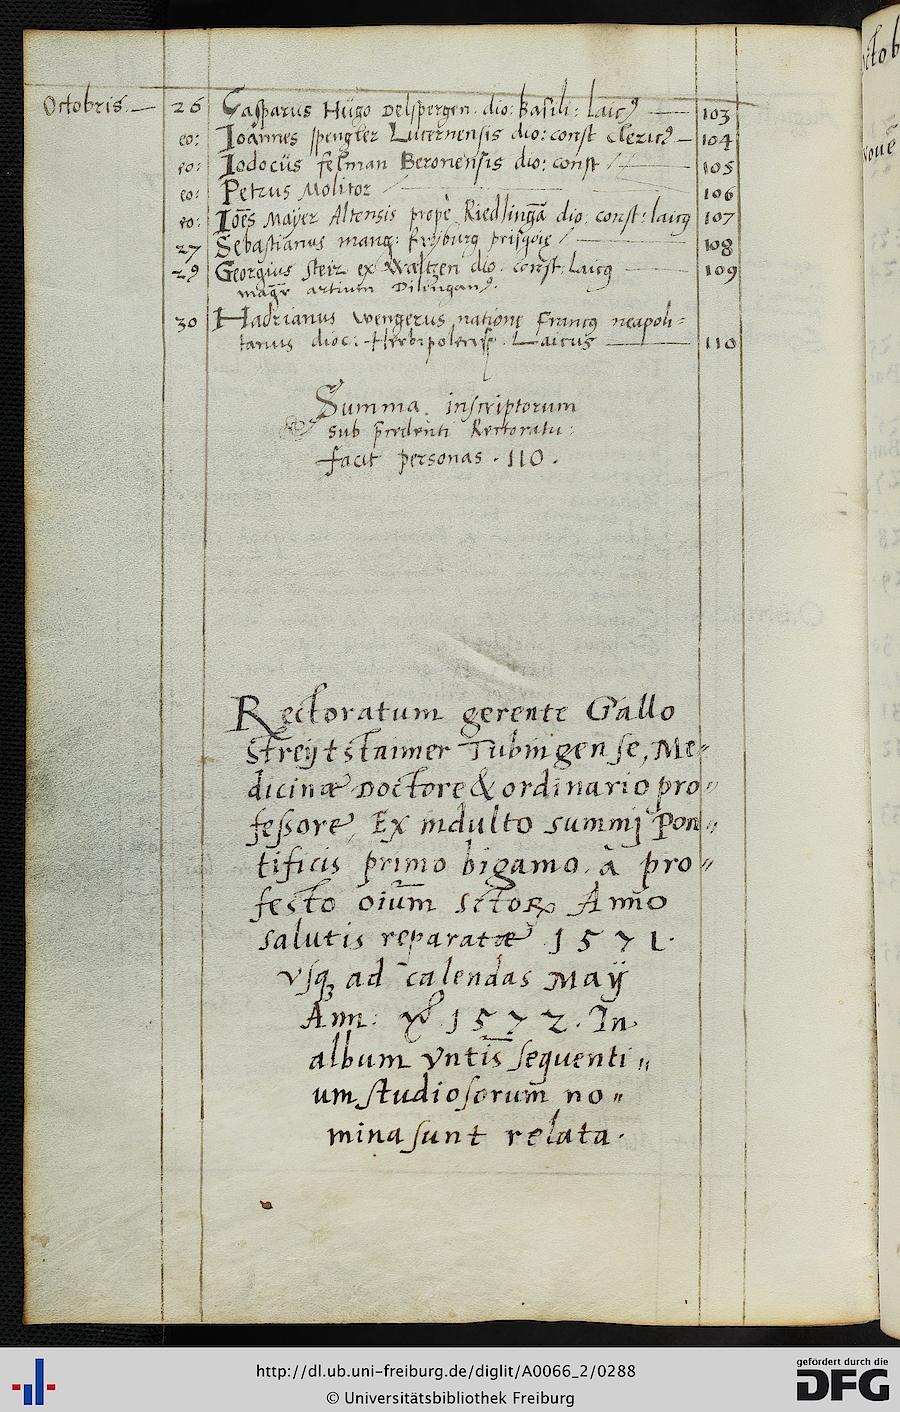 Octobris — 26 Casparus Hügo Delspergen. dio: Basili: laic9 — 103
eo: Ioannes spengler Lucernensis dio: const Cleric9 — 104
eo: Iodocüs felman Beronensis dio: const — 105
eo: Petrus Molitor — 106
eo: Ioes Mayer Altensis propè Riedlinga dio. const: laicq 107
27 Sebastianus mang: frÿburg prisgoie — 108
29 Georgius steir ex Waltzen dio. const. Laicq — 109
magr artium Dilingan9.
30 Hadrianus Wengerus natione Francq neapoli=
tanus dioc: Herbipolens. Laicus — 110
Summa inscriptorum
sub precedenti Rectoratu:
facit personas . 110 .
Rectoratum gerente Gallo
Streÿtstaimer Tubingense, Me=
dicinæ Doctore & ordinario pro=
fessore, Ex indulto summj Pon=
tificis primo bigamo. à pro=
festo oium sctorꝝ Anno
salutis reparatæ 1571.
vsq; ad calendas Maÿ
Ann: 1572. In
album vntis sequenti=
um studiosorum no=
mina sunt relata.
http://dl.ub.uni-freiburg.de/diglit/A0066_2/0288
© Universitätsbibliothek Freiburg
gefördert durch die
DFG